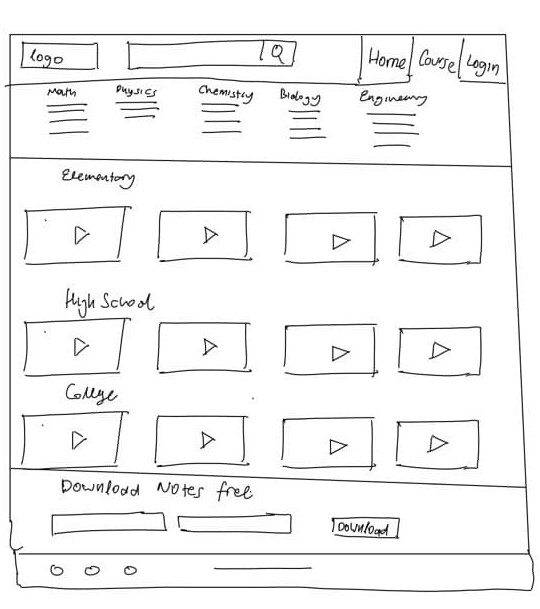 logo Q Home Course Login
Math Physics Chemistry Biology Engineering
Elementary
High School
College
Download Notes free
Download